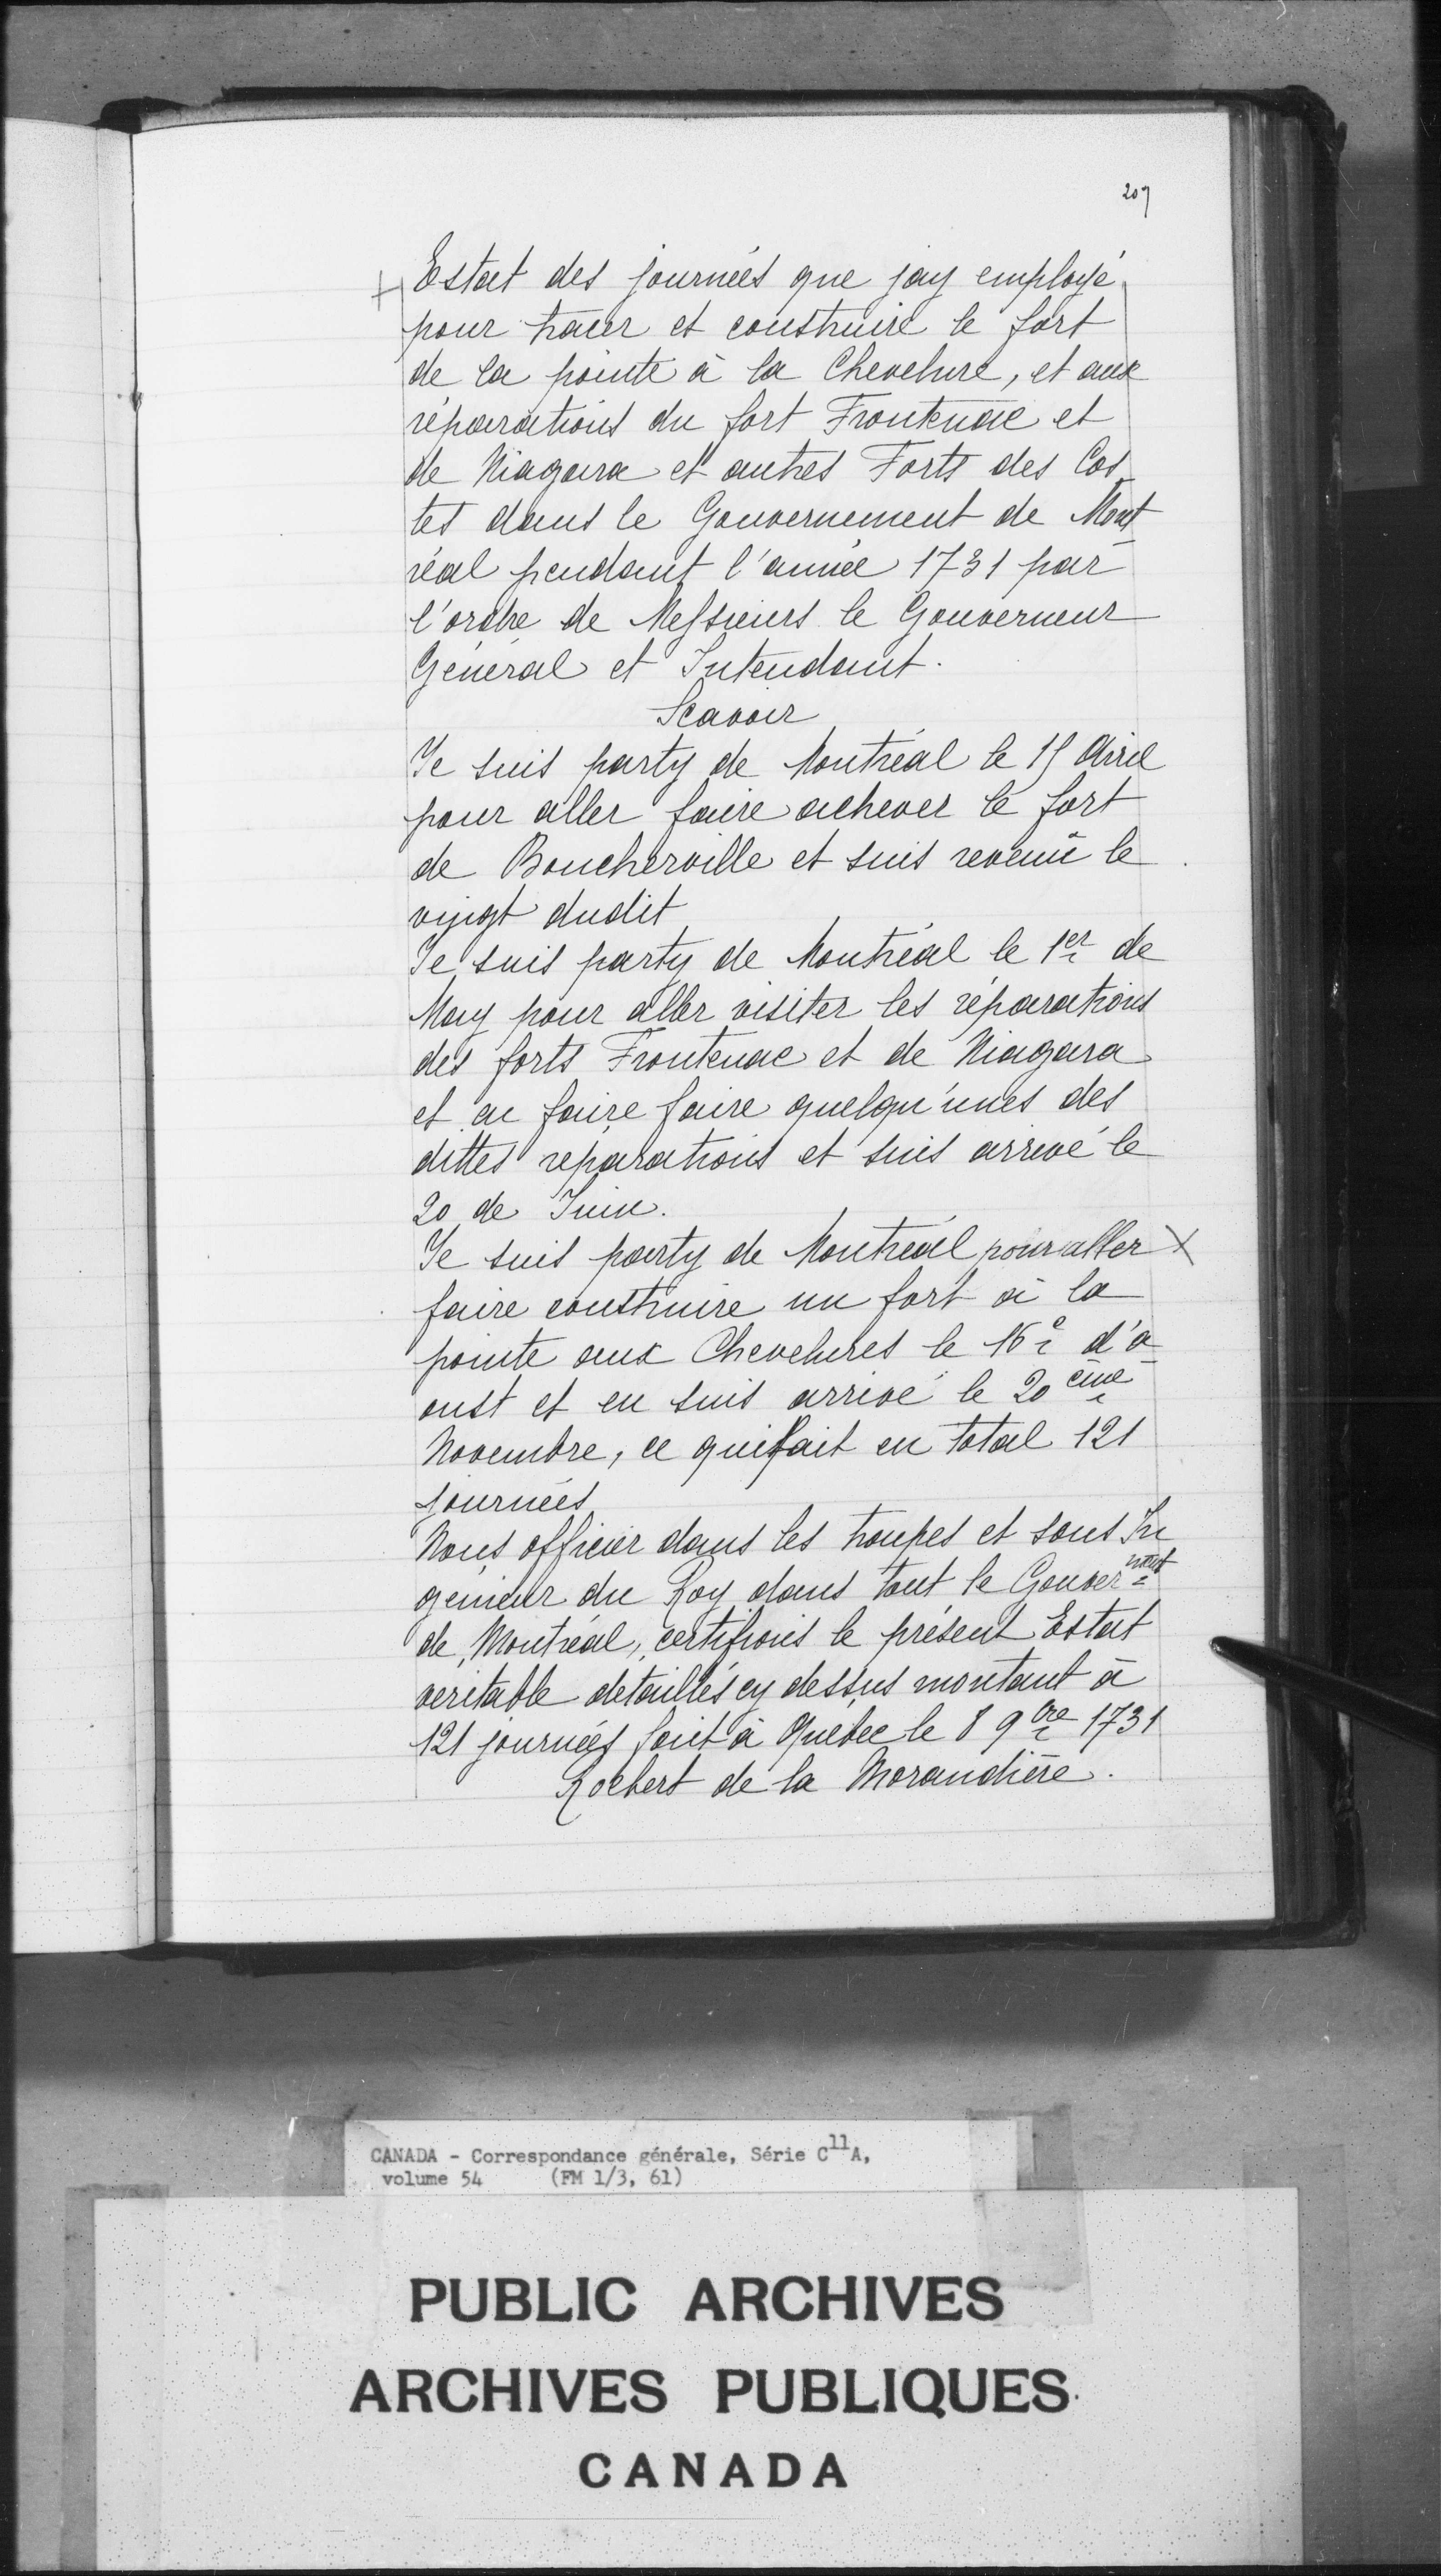 207
Estat des journées que jay employé
pour tracer et construire le fort
de la pointe à la Chevelure, et aux
réparations du fort Frontenac et
de Niagara et autres Forts des Cos
tes dans le Gouvernement de Mont
réal pendant l'année 1731 par
l'ordre de Messieurs le Gouverneur
Général et Intendant.
Scavoir
Je suis party de Montréal le 15 Avril
pour aller faire achever le fort
de Boucherville et suis revenû le
vingt dudit
Je suis party de Montréal le 1er de
May pour aller visiter les réparations
des forts Frontenac et de Niagara
et en faire faire quelqu'unes des
dittes réparations et suis arrivé le
20 de Juin.
Je suis party de Montréal pour aller X
faire construire un fort à la
pointe aux Chevelures le 16e d'a
oust et en suis arrivé le 20eme
Novembre, ce qui fait en total 121
journées
Nous officier dans les troupes et sous In
génieur du Roy dans tout le Gouvernmt
de Montréal, certifions le présent Estat
veritable detaillés cy dessus montant à
121 journées fait à Québec le 8 9bre 1731
Rocbert de la Morandière.
CANADA - Correspondance générale, Série C11A,
volume 54 (FM 1/3, 61)
PUBLIC ARCHIVES
ARCHIVES PUBLIQUES
CANADA